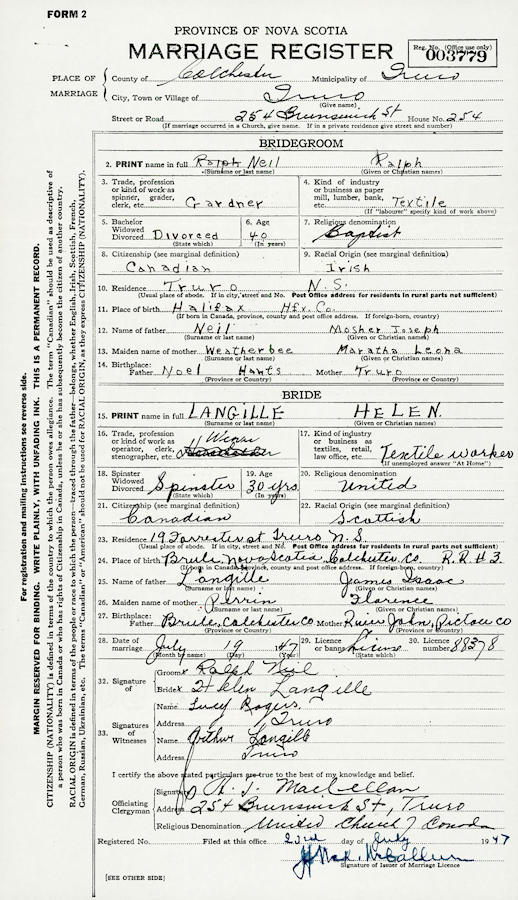 FORM 2
PROVINCE OF NOVA SCOTIA
MARRIAGE REGISTER
Reg. No. (Office use only)
003779
PLACE OF MARRIAGE
County of Colchester Municipality of Truro
City, Town or Village of Truro
(Give name)
Street or Road 254 Brunswick St House No. 254
(If marriage occurred in a Church, give name. If in a private residence give street and number)
BRIDEGROOM
2. PRINT name in full Ralph Neil Ralph
(Surname or last name) (Given or Christian names)
3. Trade, profession or kind of work as spinner, grader, clerk, etc. Gardner
4. Kind of industry or business as paper mill, lumber, bank, etc. Textile
(If "labourer" specify kind of work above)
5. Bachelor Widowed Divorced Divorced
(State which)
6. Age 40
(In years)
7. Religious denomination Baptist
8. Citizenship (see marginal definition) Canadian
9. Racial Origin (see marginal definition) Irish
10. Residence Truro N.S.
(Usual place of abode. If in city, street and No. Post Office address for residents in rural parts not sufficient)
11. Place of birth Halifax Hfx. Co.
(If born in Canada, province, county and post office address. If foreign-born, country)
12. Name of father Neil Mosher Joseph
(Surname or last name) (Given or Christian names)
13. Maiden name of mother Weatherbee Maratha Leona
(Surname or last name) (Given or Christian names)
14. Birthplace: Father Noel Hants Mother Truro
(Province or Country) (Province or Country)
BRIDE
15. PRINT name in full LANGILLE HELEN.
(Surname or last name) (Given or Christian names)
16. Trade, profession or kind of work as operator, clerk, stenographer, etc.
17. Kind of industry or business as textiles, retail, law office, etc. Textile worker
(If unemployed answer "At Home")
18. Spinster Widowed Divorced Spinster
(State which)
19. Age 30 yrs.
(In years)
20. Religious denomination United
21. Citizenship (see marginal definition) Canadian
22. Racial Origin (see marginal definition) Scottish
23. Residence 19 Forrester st Truro N.S.
(Usual place of abode. If in city, street and No. Post Office address for residents in rural parts not sufficient)
24. Place of birth Brule, Nova Scotia, Colchester Co. R.R #3.
(If born in Canada, province, county and post office address. If foreign-born, country)
25. Name of father Langille James Isaac
(Surname or last name) (Given or Christian names)
26. Maiden name of mother Perrin Florence
(Surname or last name) (Given or Christian names)
27. Birthplace: Father Brule, Colchester Co Mother River John, Pictou Co
(Province or Country) (Province or Country)
28. Date of marriage July 19 1947
(Month by name) (Day) (Year)
29. License or banns License
(State which)
30. License number 88278
32. Signature of
Groom Ralph Neil
Bride Helen Langille
33. Signatures of Witnesses
Name Lucy Rogers
Address Truro
Name Arthur Langille
Address Truro
I certify the above stated particulars are true to the best of my knowledge and belief.
Officiating Clergyman
Signature A. J. MacLellan
Address 254 Brunswick St, Truro
Religious Denomination United Church of Canada
Registered No. Filed at this office 23rd day of July 1947
Signature of Issuer of Marriage Licence
[SEE OTHER SIDE]
For registration and mailing instructions see reverse side.
MARGIN RESERVED FOR BINDING. WRITE PLAINLY, WITH UNFADING INK. THIS IS A PERMANENT RECORD.
CITIZENSHIP (NATIONALITY) is defined in terms of the country to which the person owes allegiance. The term "Canadian" should be used as descriptive of
a person who was born in Canada or who has rights of Citizenship in Canada, unless he or she has subsequently become the citizen of another country.
RACIAL ORIGIN is defined in terms of the people or race to which the person—traced through the father—belongs, whether English, Irish, Scottish, French,
German, Russian, Ukrainian, etc. The terms "Canadian" or "American" should not be used for RACIAL ORIGIN, as they express CITIZENSHIP (NATIONALITY).